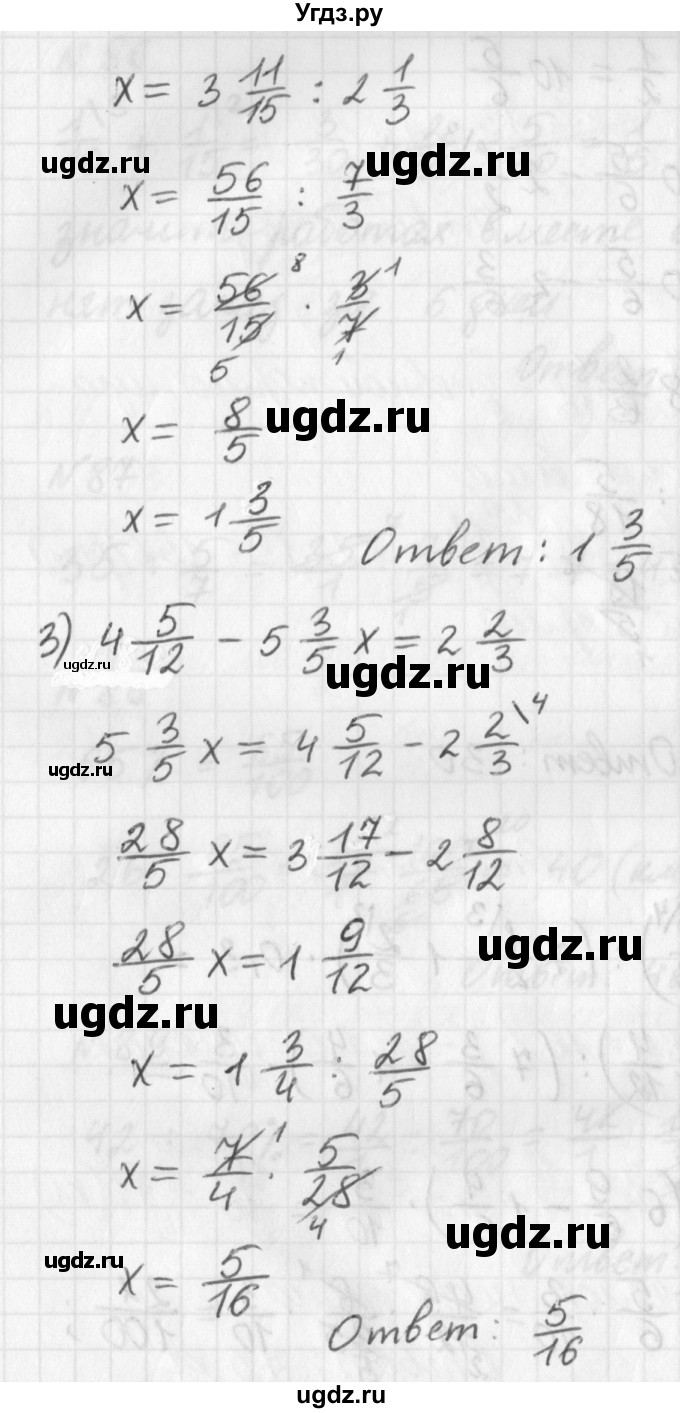 Угдз.ру
x = 3 11/15 : 2 1/3
ugdz.ru ugdz.ru
x = 56/15 : 7/3
x = 56/15 · 3/7 8 1 5 1
x = 8/5 ugdz.ru
x = 1 3/5
Ответ: 1 3/5
3) 4 5/12 - 5 3/5 x = 2 2/3
ugdz.ru ugdz.ru
5 3/5 x = 4 5/12 - 2 2/3 \4
ugdz.ru
28/5 x = 3 17/12 - 2 8/12
28/5 x = 1 9/12 ugdz.ru
ugdz.ru
x = 1 3/4 : 28/5
x = 7/4 · 5/28 1 4
ugdz.ru ugdz.ru
x = 5/16
Ответ: 5/16
ugdz.ru